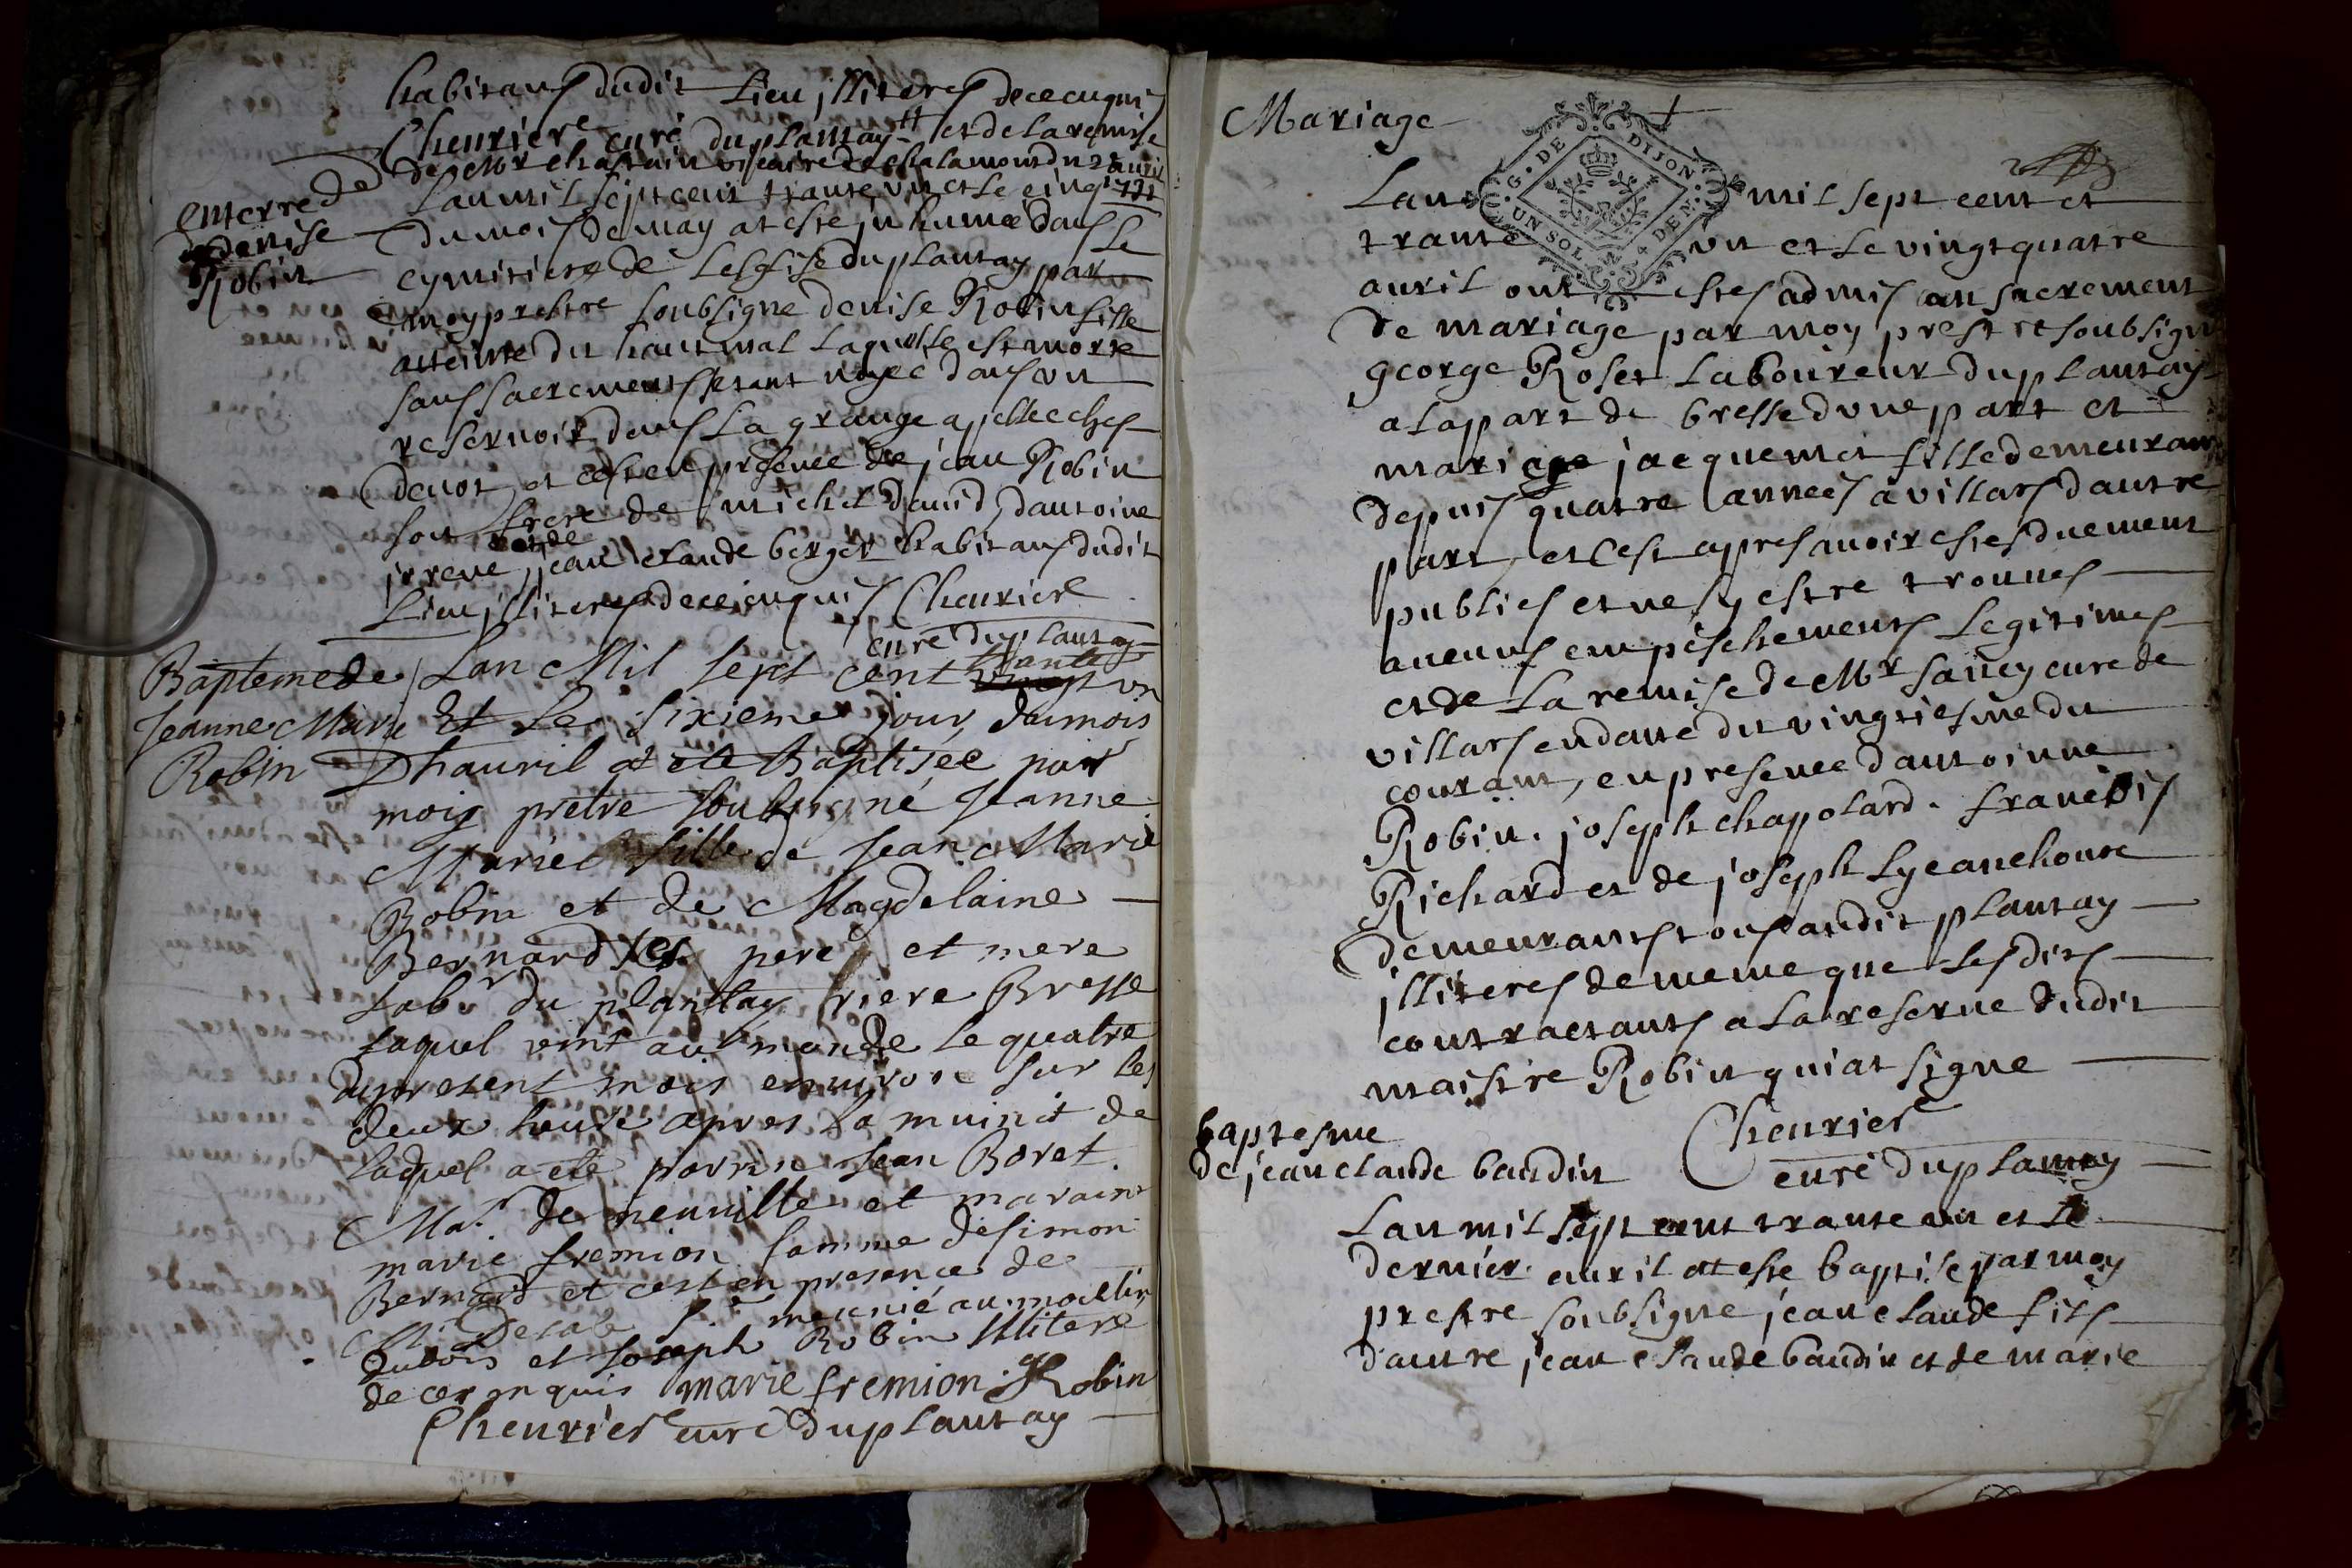 habitans dudit Lieu illiteres de ce enquis
Cheurier curé du plantay et de la remise
de Mr chastain viscaire de chalamont du 23 auril
enterre de
Lan mil sept cent trante vn et le cinq
denise
du mois de may at este inhumee dans le
Robin
cymitiere de lesglise du plantay par
moy prestre soubsigne denise Robin fille
atteinte du haut mal laquelle est morte
sans sacrements etant noyee dans vn
reseruoir dans la grange apellee ches
deuot et cest en presence de jean Robin
son frere de michel dauid, dantoine
et de
jrreue, jean claude berger habitans dudit
Lieu illiteres de ce enquis Cheurier
curé du plantay
Bapteme de Lan Mil sept cent trante vn
Jeanne Marie Et le sixieme jour dumois
Robin Dhauril a ete Baptisée par
moiy pretre soubsigné Jeanne
Mariee fille de Jean Marie
Robin et de Magdelaine
Bernard ses pere et mere
Labr du plantay riere Bresse
laquel vint au monde le quatre
du present mois enuiron sur les
deux heure apres la muinit de
laquel a ete parrin Jean Boret
Mar. de neuuille et maraine
marie fremion famme de simon
Bernard et cest en presence de
meunié au moulin
dubois et Joseph Robin illiteré
de ce enquis marie fremion Robin
Cheurier curé du plantay
Mariage
G. DE DIJON
UN SOL 4 DEN.
Lan mil sept cent et
trante vn et le vingt quatre
auril ont estes admis au sacrement
de mariage par moy prestre soubsigne
george Roset laboureur du plantay
a la part de bresse dune part et
mariage jacquemet fille demeurant
depuis quatre années a villars dautre
part, et cest apres auoir estes duement
publies et ne sy estre trouues
aucuns empeschements legitimes
et de la remise de Mr sancy cure de
villars en datte du vingtiesme du
courant, en presence dantoinne
Robin. joseph chapolard. francois
Richard et de joseph Lyeanehoure
demeurants tous audit plantay
illiteres de meme que lesdits
contractants a la reserue dudit
maistre Robin qui at signe
Cheurier
curé du plantay
baptesme
de jean claude baudin
Lan mil sept cent trante vn et le
dernier auril at este baptise par moy
prestre soubsigne jean claude fils
dautre jean claude baudin et de marie